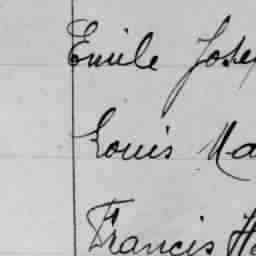 Emile Jose
Louis Ma
Francis H